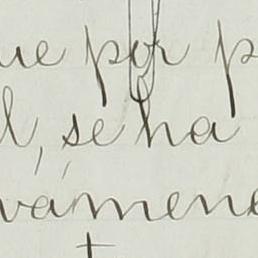 ue por p
l, se ha
vamene
t